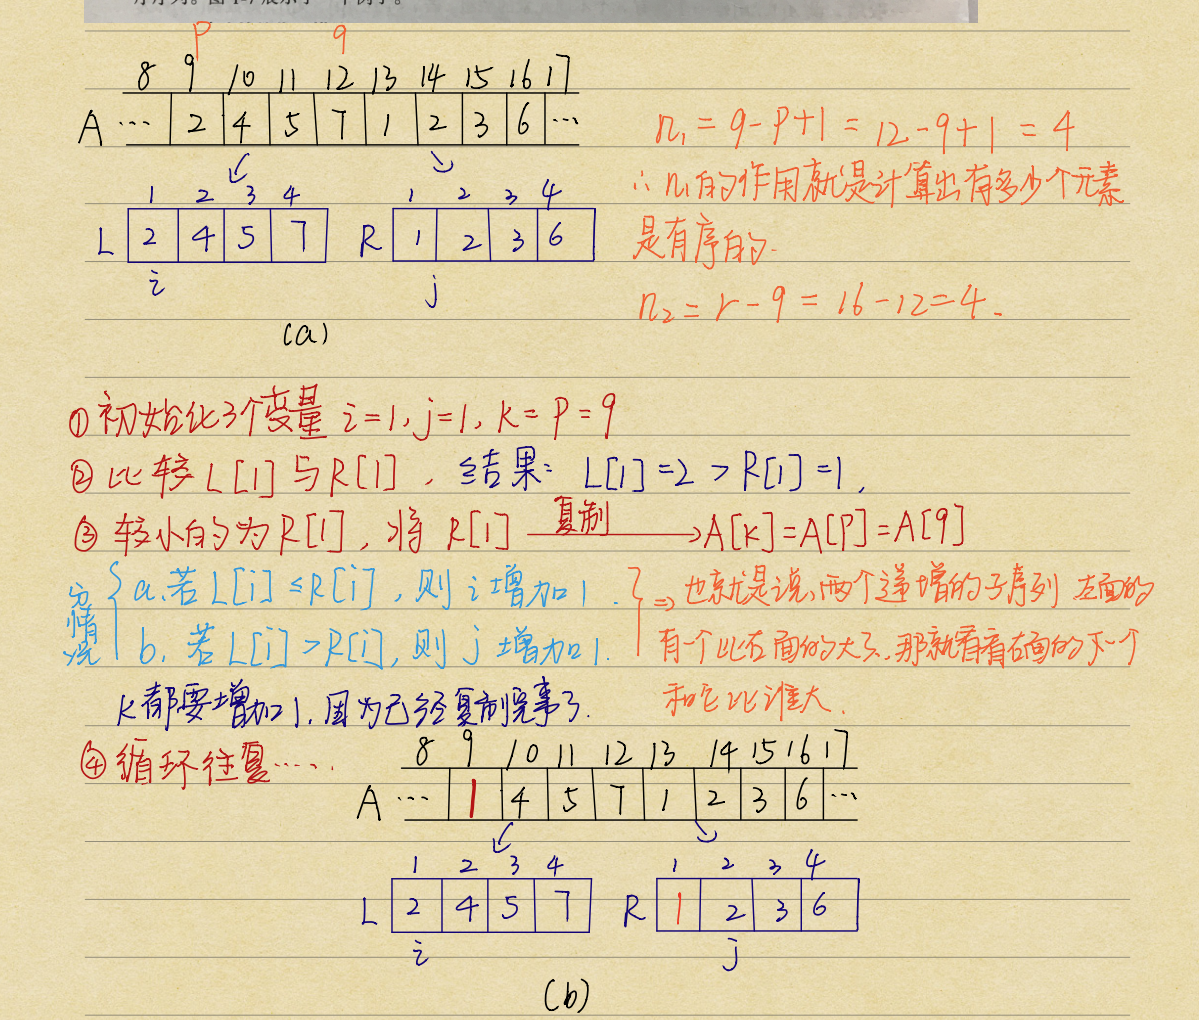 p q
8 9 10 11 12 13 14 15 16 17
A ... 2 4 5 7 1 2 3 6 ...
1 2 3 4 1 2 3 4
L 2 4 5 7 R 1 2 3 6
i j
(a)
n₁ = q-p+1 = 12-9+1 = 4
∴ n₁的作用就是计算出有多少个元素
是有序的.
n₂ = r-q = 16-12=4.
①初始化3个变量 i=1, j=1, k=p=9
②比较L[1]与R[1], 结果: L[1]=2 > R[1]=1,
③较小的为R[1], 将 R[1] 复制→A[k]=A[p]=A[9]
分情况
a.若L[i]≤R[i], 则i增加1.
b. 若L[i]>R[i], 则j增加1.
⇒ 也就是说,两个递增的子序列 左面的
有一个比右面的大了,那就看看右面的下一个
和它比谁大.
k都要增加1, 因为已经复制完事了.
④循环往复......
8 9 10 11 12 13 14 15 16 17
A ... 1 4 5 7 1 2 3 6 ...
1 2 3 4 1 2 3 4
L 2 4 5 7 R 1 2 3 6
i j
(b)